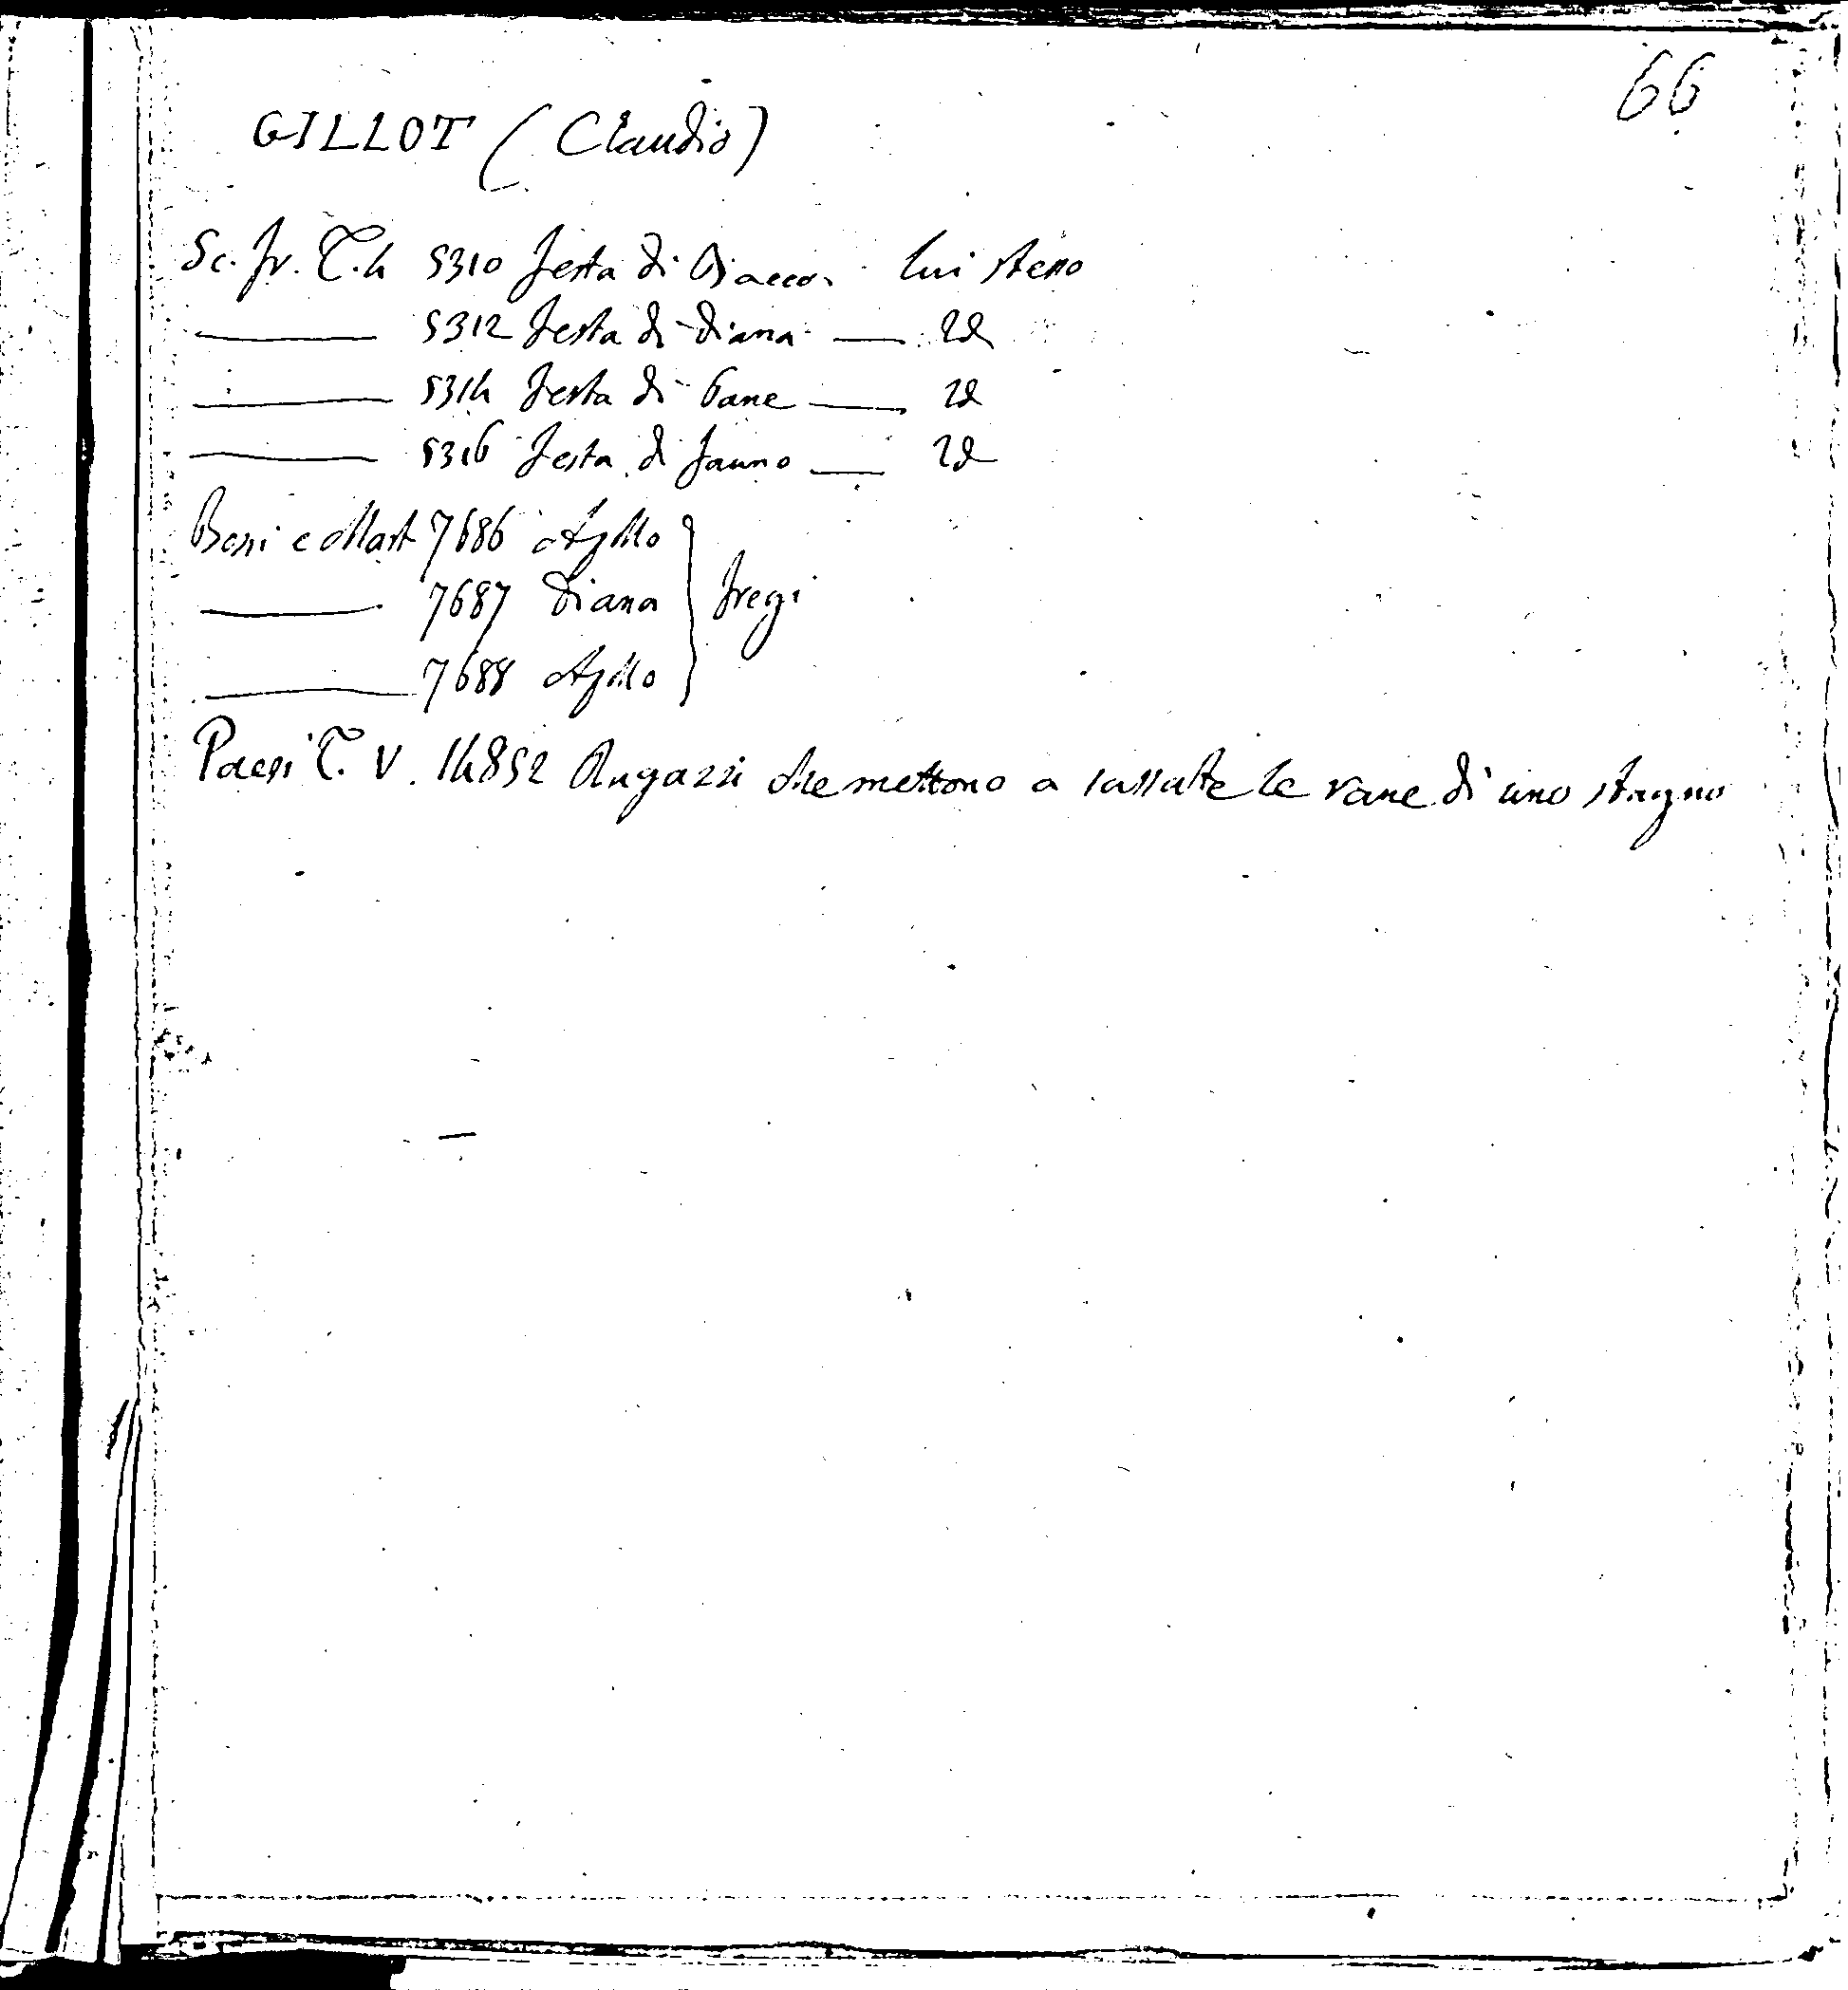 66
GILLOT (Claudio)
Sc. fr. T. 4 5310 festa di Bacco. lui stesso
——— 5312 festa di Diana —— Id
——— 5314 festa di Pane —— Id
——— 5316 festa di fauno —— Id
Bassi e Mart 7686 Apollo
——— 7687 Diana } fregi
——— 7688 Apollo
Paesi T. V. 14852 Ragazzi che mettono a sassate le rane di uno stagno